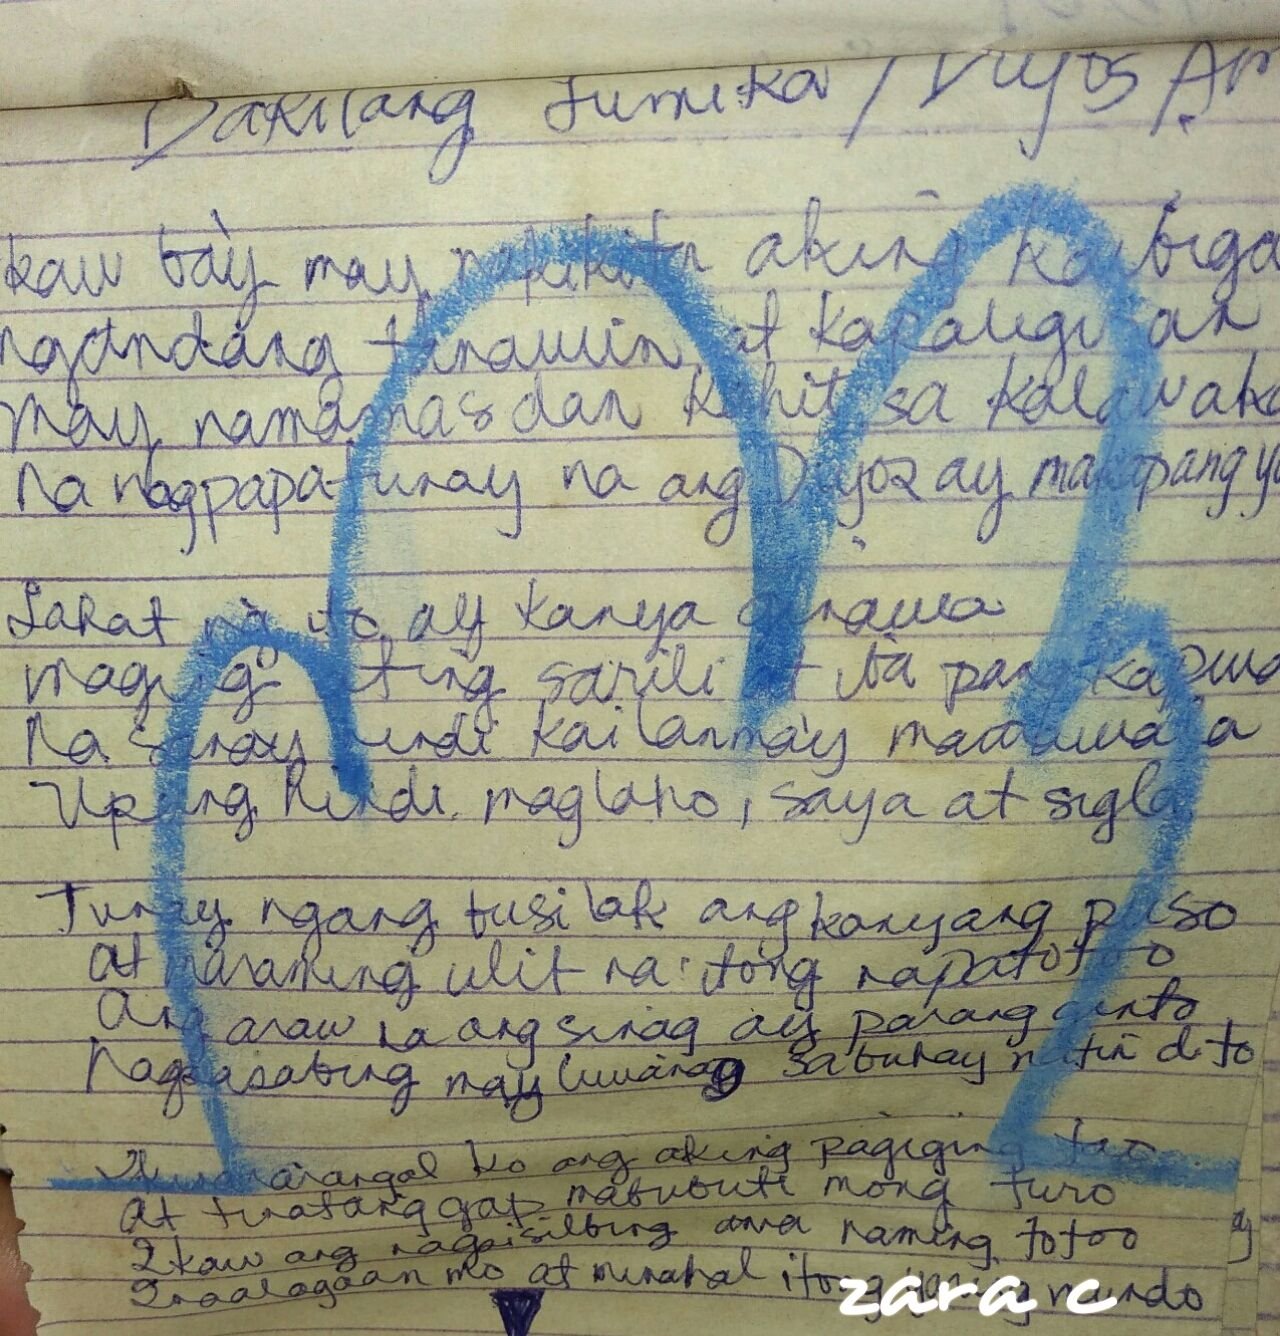 Dakilang Lumika / Diyos Am
kaw bay may nakikita aking kaibiga
ngandang tanawin at kapaligiran
may namamasdan kahit sa kalawaka
na nagpapatunay na ang Diyos ay makapangya
Lahat ng ito ay kanya ginawa
maging ating sarili at iba pang kapwa
Na sanay hindi kailanmay mawawala
Upang hindi maglaho, saya at sigla
Tunay ngang busilak ang kanyang puso
at maraming ulit na itong napatotoo
Ang araw na ang sinag ay parang ginto
Nagsasabing may liwanag sa buhay natin dito
ko ang aking pagiging tao
at tinatanggap mabubuti mong turo
Ikaw ang nagsisilbing ama naming totoo
Inaalagaan mo at minahal itong mundo
zara c